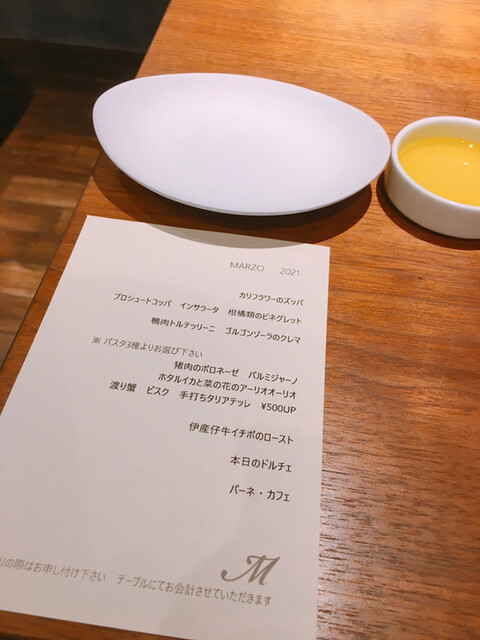 MARZO 2021
カリフラワーのズッパ
プロシュートコッパ インサラータ 柑橘類のビネグレット
鴨肉トルテッリーニ ゴルゴンゾーラのクレマ
※ パスタ3種よりお選び下さい
猪肉のボロネーゼ パルミジャーノ
ホタルイカと菜の花のアーリオオーリオ
渡り蟹 ビスク 手打ちタリアテッレ ¥500UP
伊産仔牛イチボのロースト
本日のドルチェ
パーネ・カフェ
M
の際はお申し付け下さい テーブルにてお会計させていただきます